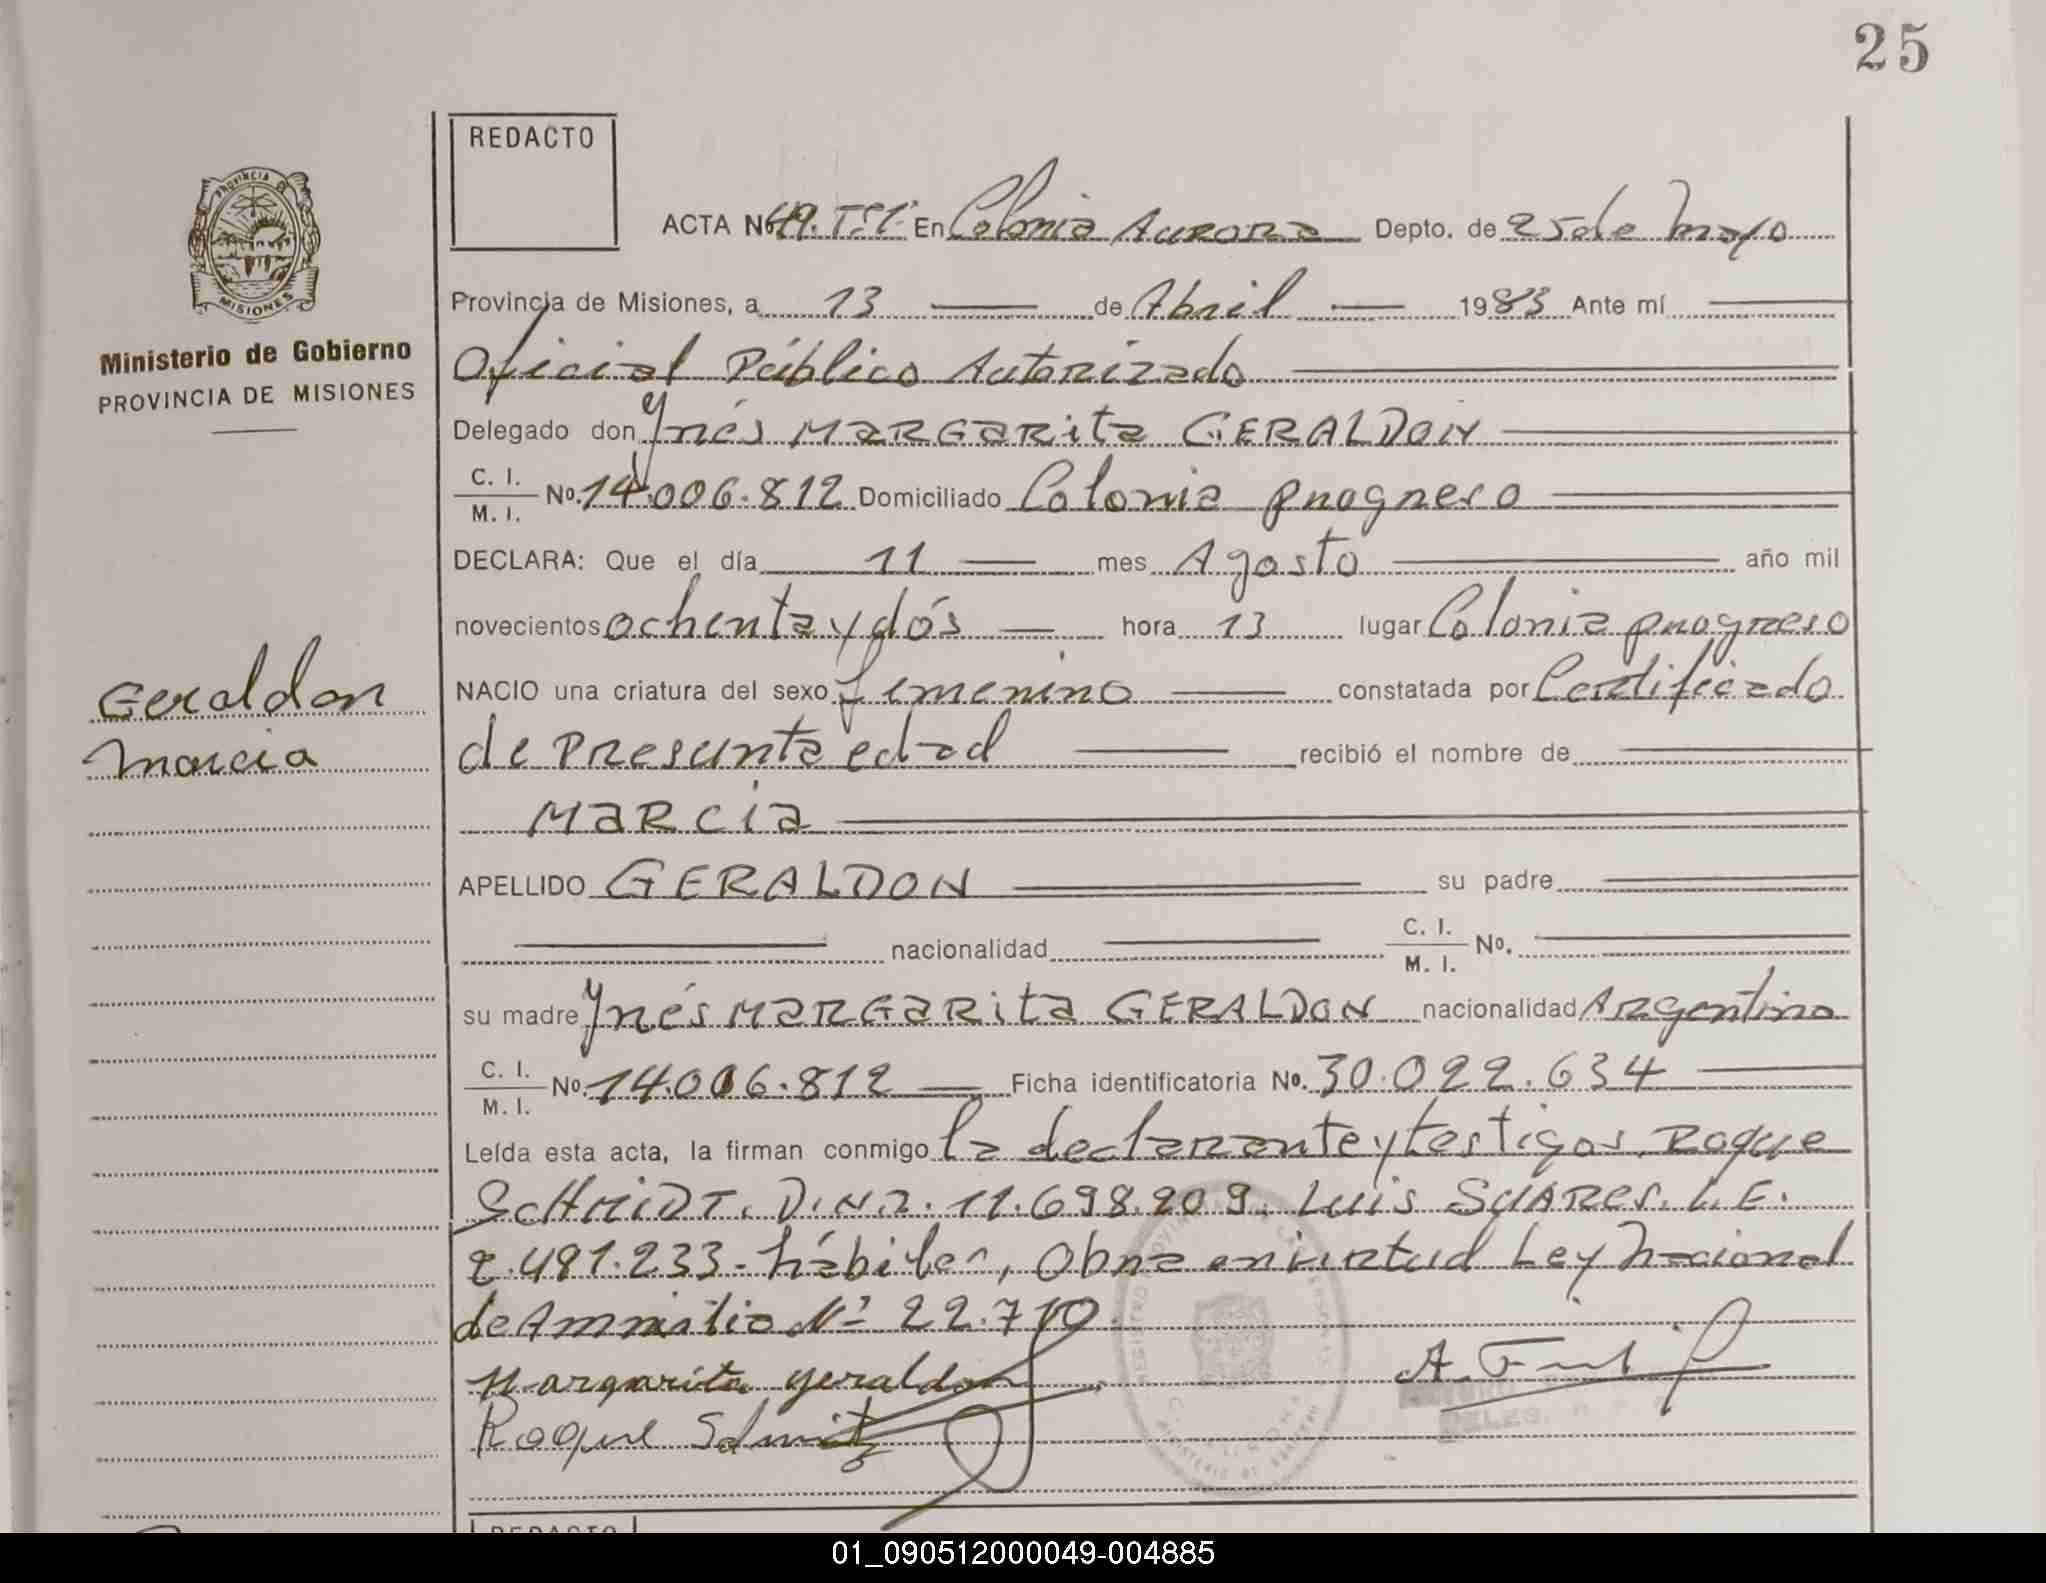 25
REDACTO
PROVINCIA DE
MISIONES
Ministerio de Gobierno
PROVINCIA DE MISIONES
ACTA Nº 49. Tº1º En Colonia Aurora Depto. de 25 de Mayo
Provincia de Misiones, a 13 de Abril 1983 Ante mí
Oficial Público Autorizado
Delegado don Ynés MARGARita GERALDON
C. I.
M. I. Nº. 14.006.812 Domiciliado Colonia progreso
DECLARA: Que el día 11 mes Agosto año mil
novecientos ochenta y dós hora 13 lugar Colonia progreso
Geraldon
NACIO una criatura del sexo femenino constatada por Certificado
Marcia
de Presunta edad recibió el nombre de
MaRcia
APELLIDO GERALDON su padre
nacionalidad C. I.
M. I. Nº.
su madre Ynés MARGARita GERALDON nacionalidad Argentina
C. I.
M. I. Nº. 14.006.812 Ficha identificatoria Nº. 30.022.634
Leída esta acta, la firman conmigo la declarante y testigos. Roque
SCHMIDT. D.N.I. 11.698.209. Luis SUARES. L.E.
2.481.233- hábiles, Obra en virtud Ley Nacional
de Amnistia Nº 22.710.
Margarita Geraldon
Roque Schmitz
REDACTO
01_090512000049-004885